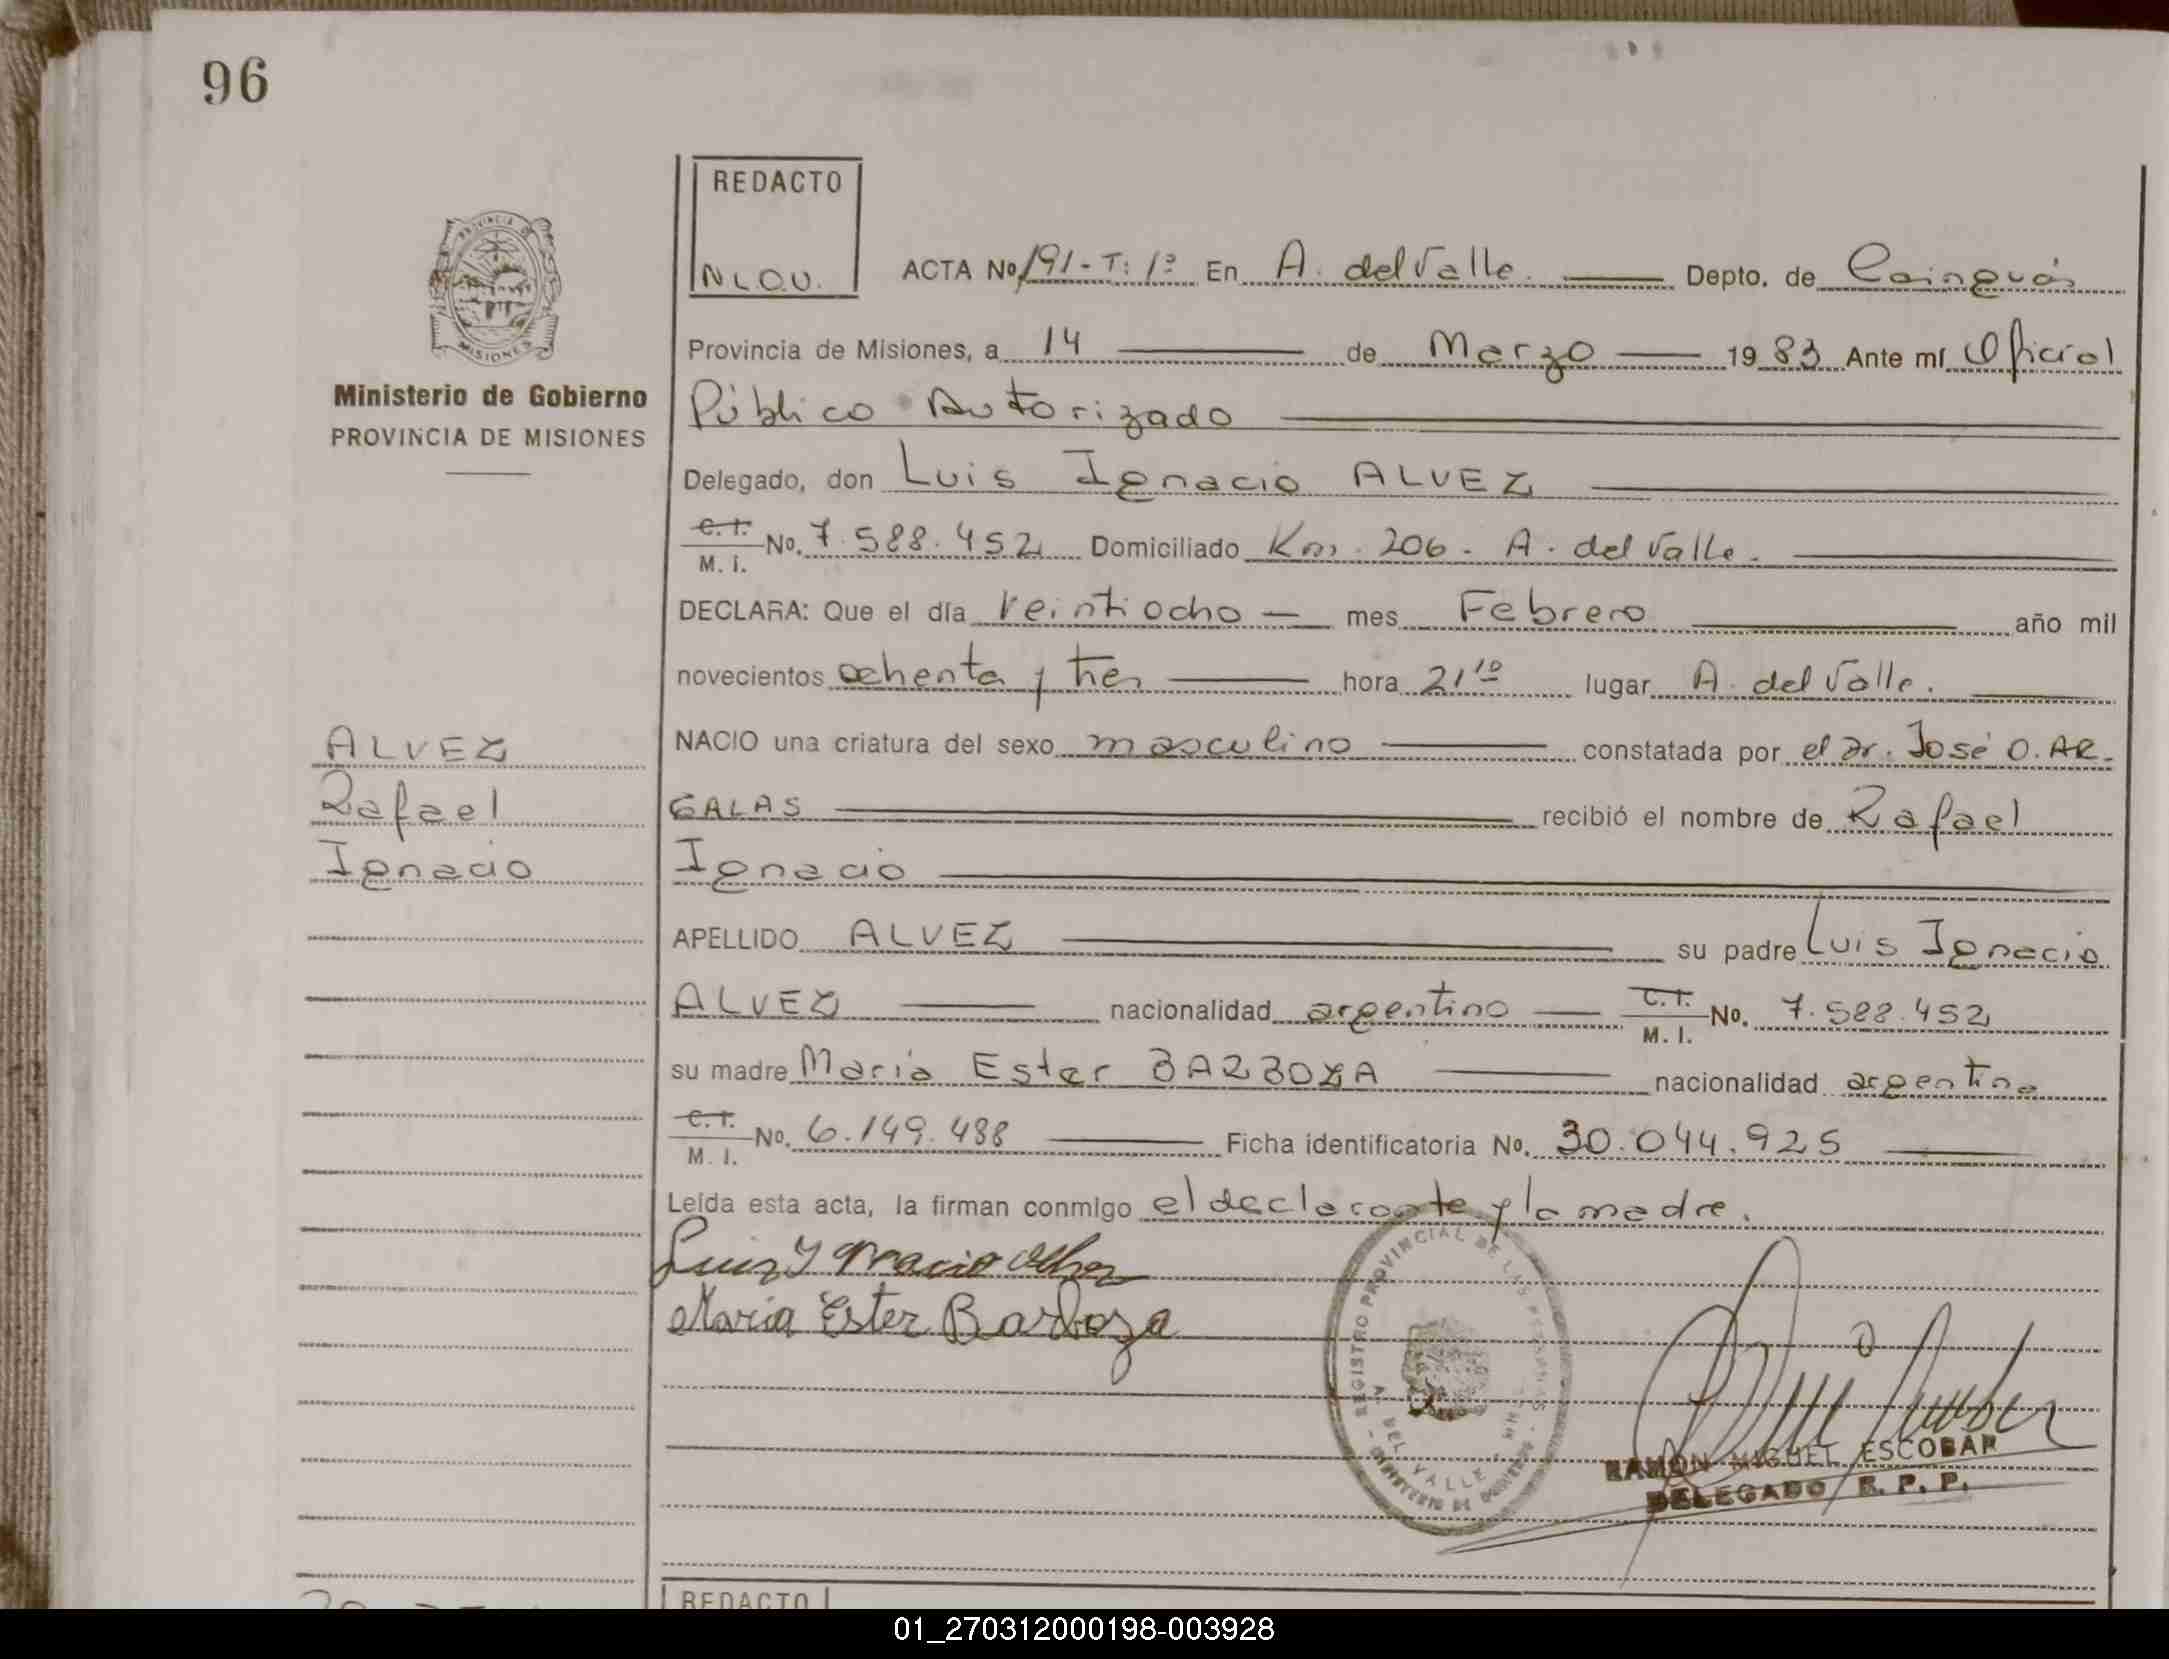 96
REDACTO
N.L.O.V.
ACTA No 191-T: 1º En A. del Valle. Depto. de Cainguás
Provincia de Misiones, a 14 de Marzo 1983 Ante mí Oficial
Público Autorizado
PROVINCIA DE
MISIONES
Ministerio de Gobierno
PROVINCIA DE MISIONES
Delegado, don Luis Ignacio ALVEZ
C.I. M.I. No. 7.588.452 Domiciliado Km. 206 - A. del Valle.
DECLARA: Que el día veintiocho mes Febrero año mil
novecientos ochenta y tres hora 21¹⁰ lugar A. del Valle.
NACIO una criatura del sexo masculino constatada por el Dr. José O. AR-
GALAS recibió el nombre de Rafael
Ignacio
ALVEZ
Rafael
Ignacio
APELLIDO ALVEZ su padre Luis Ignacio
ALVEZ nacionalidad argentino C.I. M.I. No. 7.588.452
su madre María Ester BARBOZA nacionalidad argentina
C.I. M.I. No. 6.149.488 Ficha identificatoria No. 30.044.925
Leída esta acta, la firman conmigo el declarante y la madre.
Luis Ygnacio Alvez
María Ester Barboza
REGISTRO PROVINCIAL DE LAS PERSONAS
A. DEL VALLE - MNES.
MINISTERIO DE GOBIERNO
RAMON MIGUEL ESCOBAR
DELEGADO R. P. P.
REDACTO
01_270312000198-003928